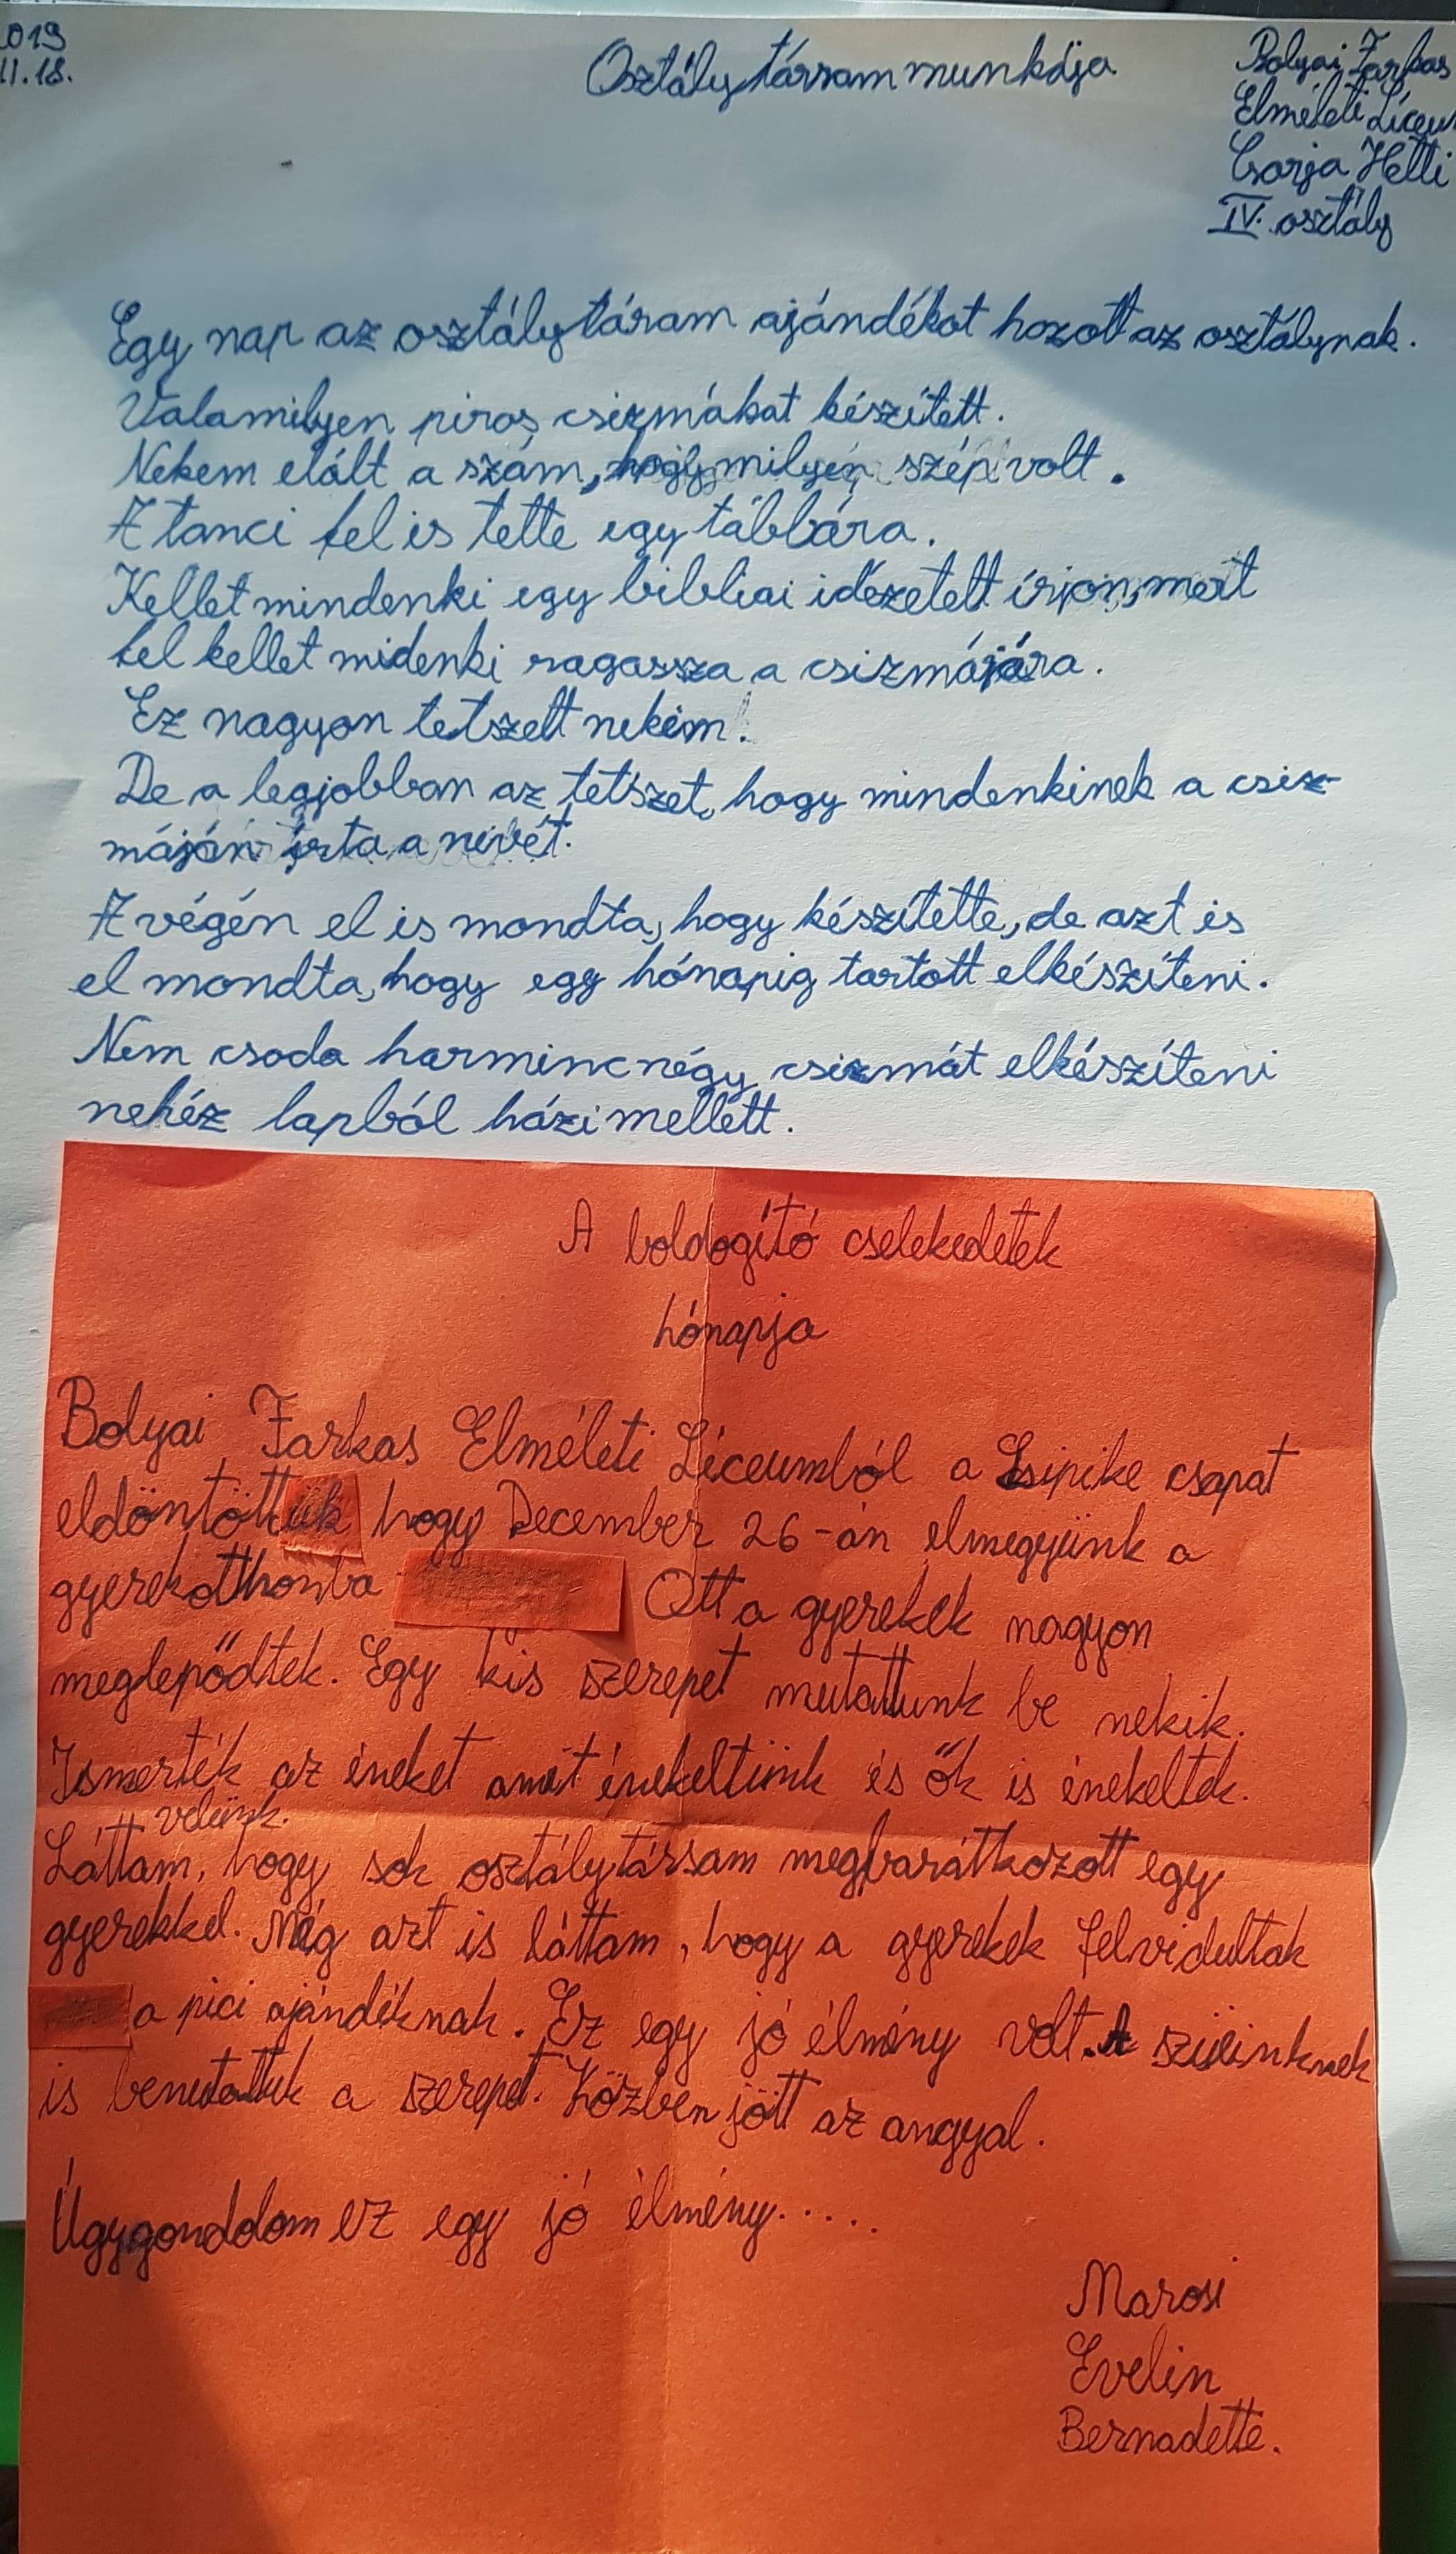 019
11.18.
Osztálytársam munkája
Bolyai Farkas
Elméleti Líceu
Csorja Hetti
IV. osztály
Egy nap az osztálytáram ajándékot hozott az osztálynak.
Valamilyen piros csizmákat készített.
Nekem elált a szám, hogy milyen szép volt.
A tanci fel is tette egy táblára.
Kellet mindenki egy bibliai idézetett írjon, mert
fel kellet midenki ragassza a csizmájára.
Ez nagyon tetszett nekem!
De a legjobban az tetszet, hogy mindenkinek a csiz-
máján írta a nevét.
A végén el is mondta, hogy készítette, de azt is
el mondta, hogy egy hónapig tartott elkészíteni.
Nem csoda harmincnégy csizmát elkészíteni
nehéz lapból házi mellett.
A boldogító cselekedetek
hónapja
Bolyai Farkas Elméleti Líceumból a Csipike csapat
eldöntöttük hogy December 26-án elmegyünk a
gyerekotthonba Ott a gyerekek nagyon
meglepődtek. Egy kis szerepet mutattunk be nekik.
Ismerték az éneket amit énekeltünk és ők is énekeltek.
velünk.
Láttam, hogy sok osztálytársam megbarátkozott egy
gyerekkel. Még azt is láttam, hogy a gyerekek felvidultak
a pici ajándéknak. Ez egy jó élmény volt. A szüleinknek
is bemutattuk a szerepet. Közben jött az angyal.
Úgygonddom ez egy jó élmény.....
Marosi
Evelin
Bernadette.